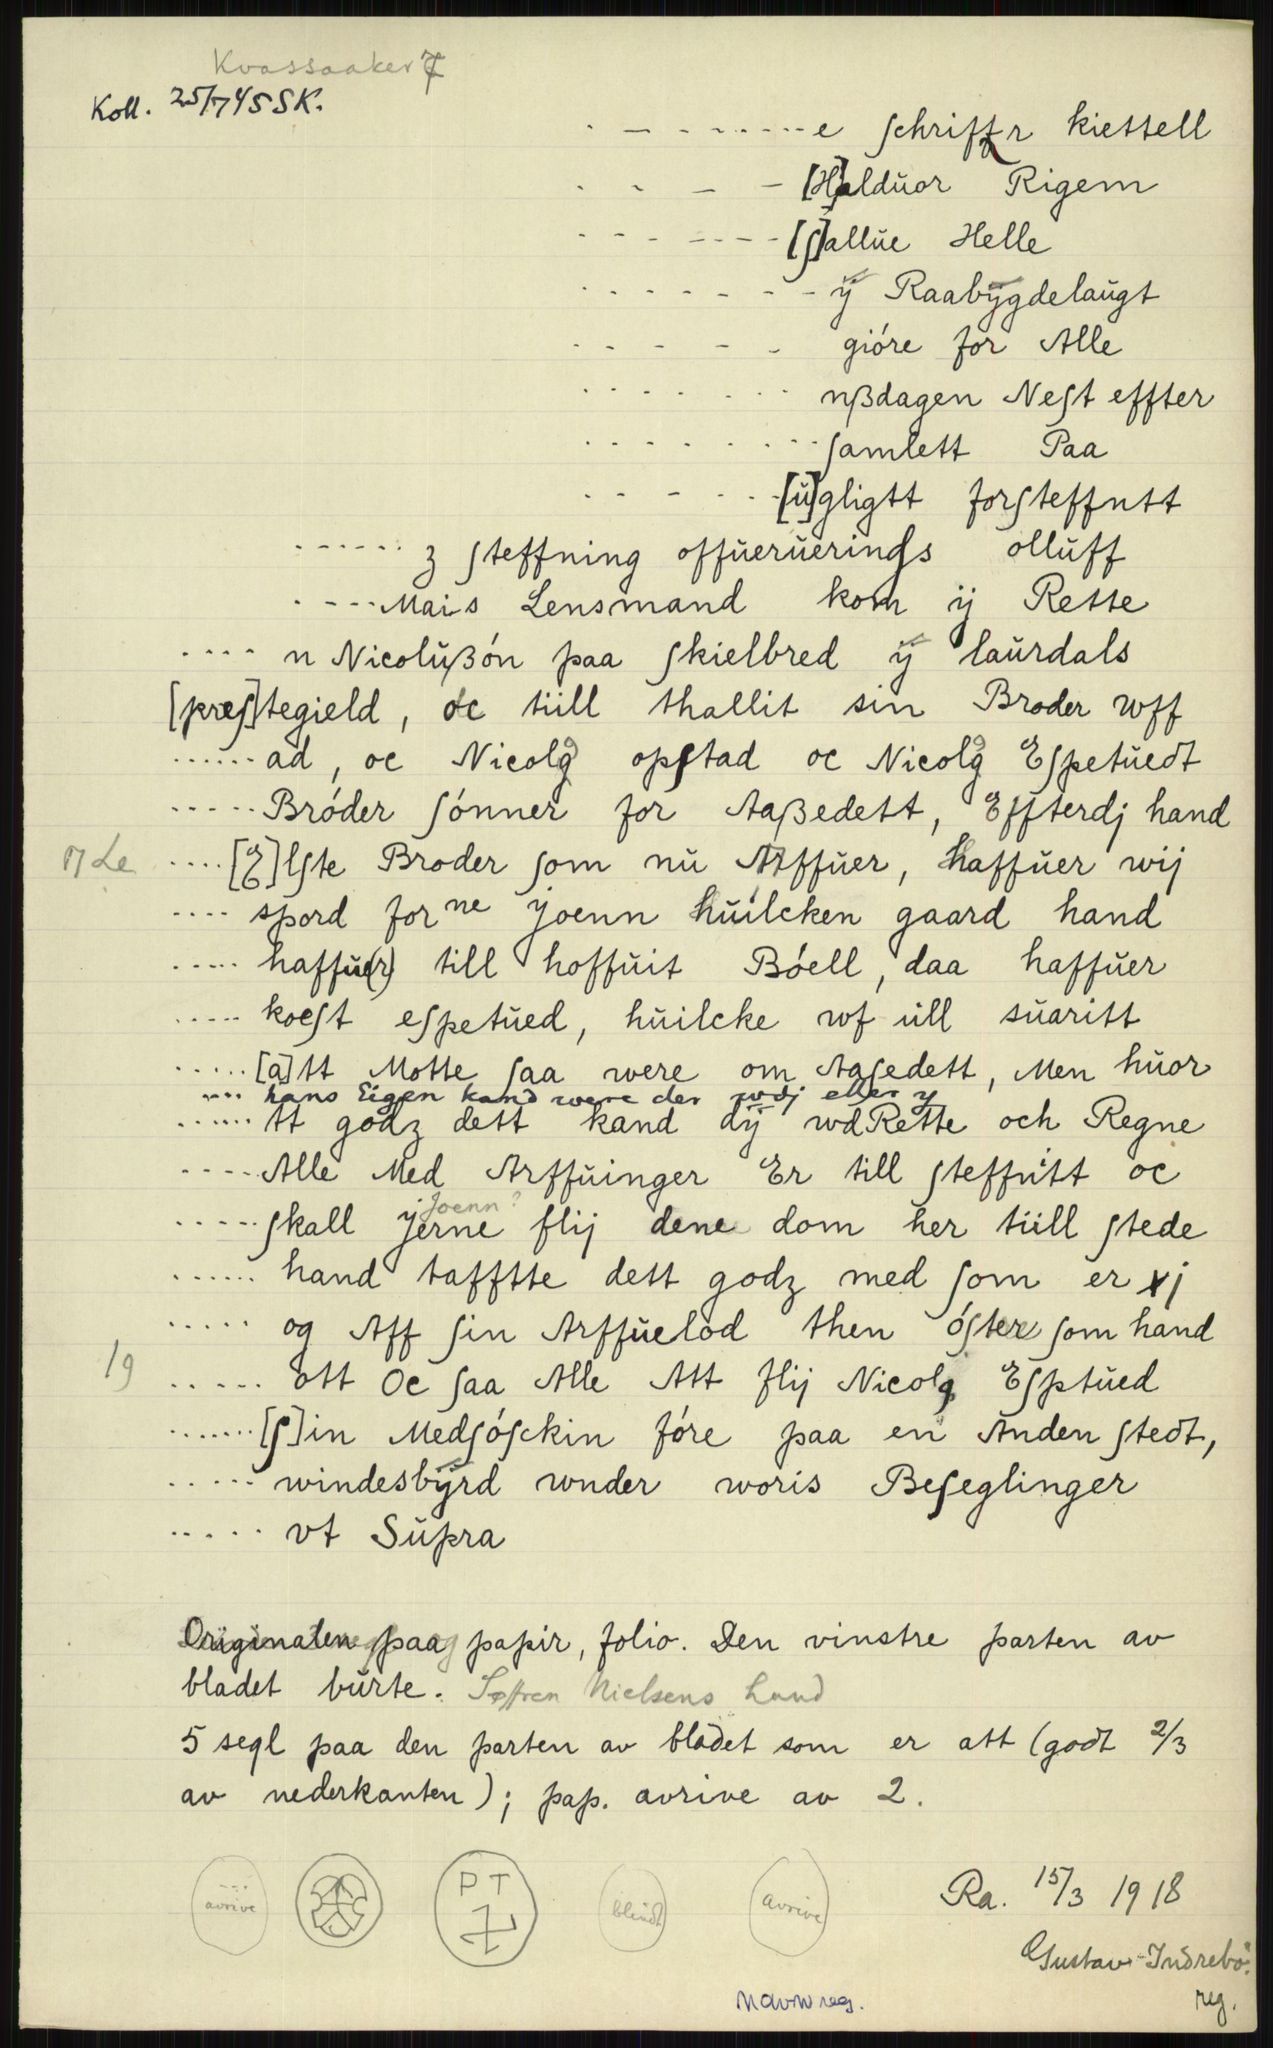 Kvassaaker 7
Koll. 25/7 45 SK.
. — - - - ..... e ſchriffr kiettell
. - - — — [H]alduor Rigem
. - - - - - - - [ſ]allue Helle
. . . . - - - - ÿ Raabÿgdelaugt
. . - - - - gióre for Alle
. . . . . . . . nßdagen Neſt effter
. . . . . . . . ſamlett Paa
. . - - - . - [u]gligtt forſteffntt
...... z ſteffning offueruerings olluff
. - - - - Mais Lensmand kom ij Rette
.... n Nicolußón paa ſkielbred ÿ laurdals
[preſ]tegield, oc tiill thallit sin Broder wff
...... ad, oc Nicolg opſtad oc Nicolg Eſpetuedt
..... Bróder ſónner for Aaßedett, Effterdj hand
.... [E]lſte Broder ſom nu Arffuer, haffuer wij
.... spord for ne joenn huilcken gaard hand
..... haffue(r) till hoffuit Bóell, daa haffuer
..... koeſt eſpetued, huilcke wf uill suaritt
..... [a]tt Motte ſaa were om Aaſedett, Men huor
.... hans Eigen kand were der wdj eller y
...... tt godz dett kand dÿ wd Rette och Regne
..... Alle Med Arffuinger Er till ſteffnitt oc
Joenn?
..... ſkall jerne flij dene dom her tiill ſtede
...... hand tafftte dett godz med ſom er xj
..... og Aff ſin Arffuelod then óſter ſom hand
19
..... ott Oc ſaa Alle Att flij Nicolg Eſptued
....... [ſ]in Medſóſckin fóre paa en Anden ſtedt,
..... windesbÿrd wnder woris Beſeglinger
..... vt Supra
Originalen paa papir, folio. Den vinstre parten av
bladet burte. Søffren Nielsens hand
5 segl paa den parten av bladet som er att (godt 2/3
av nederkanten); pap. avrive av 2.
avrive
P T
blindt
avrive
Ra. 15/3 1918
Gustav Indrebø.
reg.
Navnreg.